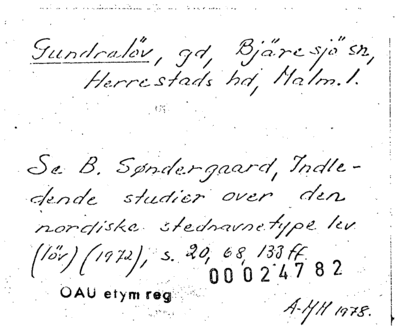 Gundralöv, gd, Bjäresjö sn,
Herrestads hd, Malm.l.
Se B. Søndergaard, Indle-
dende studier over den
nordiske stednavnetype lev
(löv) (1972), s. 20, 68, 133 ff.
00024782
OAU etym reg
A-MH 1978.